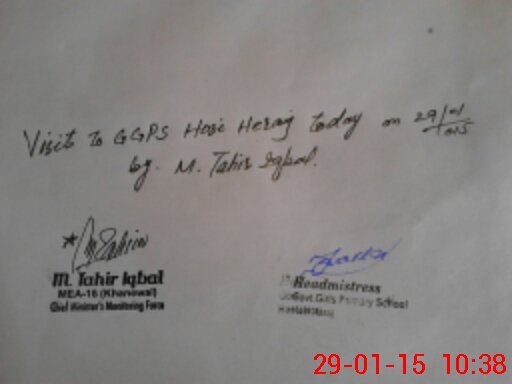 Visit to GGPS Hosi Heraj today on 29/01/015
by. M. Tahir Iqbal.
M. Tahir Iqbal
MEA-16 (Khanewal)
Chief Minister's Monitoring Force
Headmistress
Govt. Girls Primary School
29-01-15 10:38